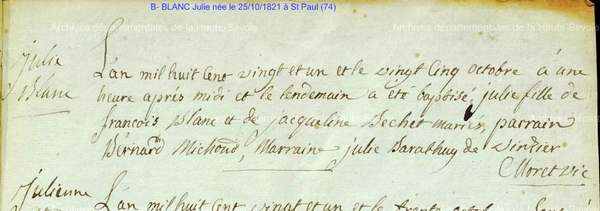 B- BLANC Julie née le 25/10/1821 à St Paul (74)
Archives départementales de la Haute-Savoie
Archives départementales de la Haute-Savoie
julie
Blanc
L'an mil huit Cent vingt et un et le vingt Cinq octobre à une
heure après midi et le lendemain a été baptisé julie fille de
françois Blanc et de jacqueline Bechet mariés, parrain
Bernard Michoud, Marraine julie de
Moret Vic
julienne
L'an mil huit Cent vingt et un et le trente